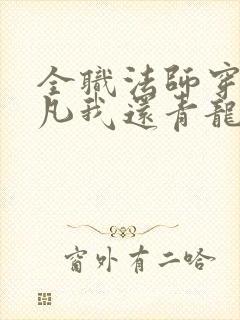 全職法師穿
凡我還青龍
窗外有二哈